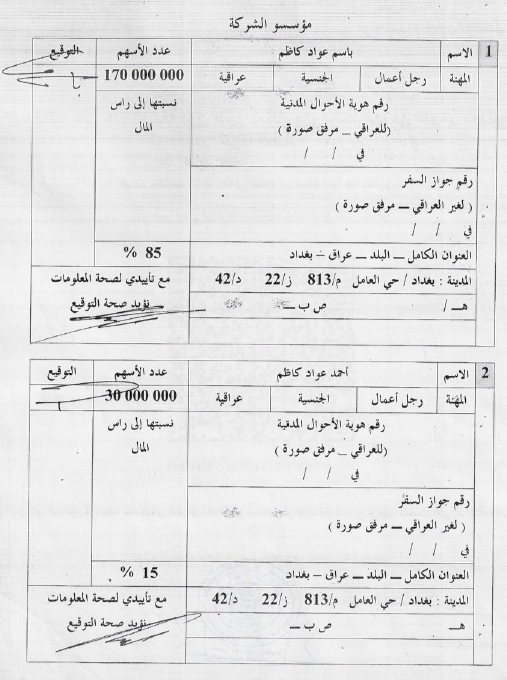 مؤسسو الشركة
1 الاسم باسم عواد كاظم عدد الأسهم التوقيع
المهنة رجل أعمال الجنسية عراقية 170 000 000
رقم هوية الأحوال المدنية نسبتها إلى راس
(للعراقي _ مرفق صورة ) المال
في / /
رقم جواز السفر
( لغير العراقي _ مرفق صورة )
في / /
العنوان الكامل _ البلد _ عراق - بغداد 85 %
المدينة : بغداد / حي العامل م/813 ز/22 د/42 مع تأييدي لصحة المعلومات
هـ / ص ب _ نؤيد صحة التوقيع
2 الاسم أحمد عواد كاظم عدد الأسهم التوقيع
المهنة رجل أعمال الجنسية عراقية 30 000 000
رقم هوية الأحوال المدنية نسبتها إلى راس
(للعراقي _ مرفق صورة ) المال
في / /
رقم جواز السفر
( لغير العراقي _ مرفق صورة )
في / /
العنوان الكامل _ البلد _ عراق - بغداد 15 %
المدينة : بغداد / حي العامل م/813 ز/22 د/42 مع تأييدي لصحة المعلومات
هـ ص ب _ نؤيد صحة التوقيع